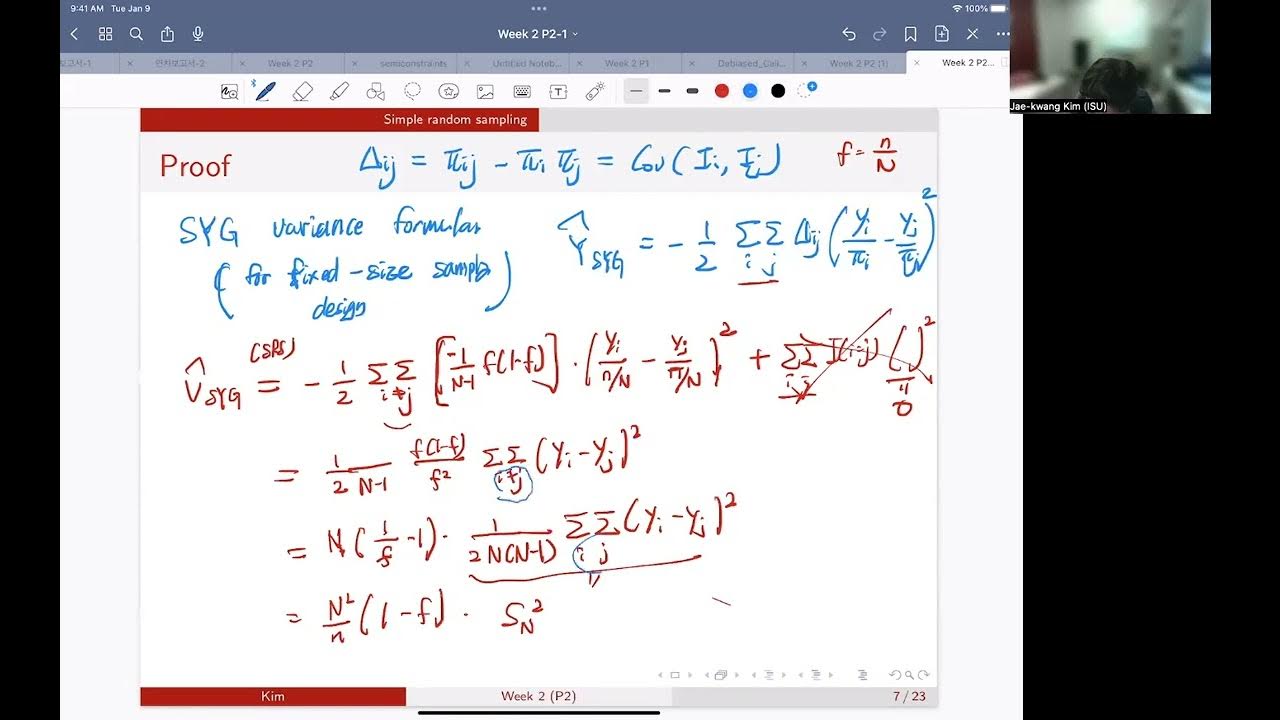 9:41 AM Tue Jan 9
100%
Week 2 P2-1
연차보고서-2
Week 2 P2
semiconstraints
Untitled Noteb...
Week 2 P1
Debiased_Cali...
Week 2 P2 (1)
Week 2 P2...
Jae-kwang Kim (ISU)
Simple random sampling
Proof
Δij = πij - πi πj = Cov(Ii, Ij)
f = n/N
SYG variance formular
(for fixed-size sample design)
Ŷ_SYG = - 1/2 Σ_i Σ_j Δij (yi/πi - yj/πj)^2
V̂_SYG (SRS) = - 1/2 ΣΣ_{i≠j} [-1/(N-1) f(1-f)] · (yi/(n/N) - yj/(n/N))^2 + ΣΣ_{i,j} I(i=j) ( )^2
"
0
= 1/2 1/(N-1) f(1-f)/f^2 ΣΣ_{i≠j} (yi - yj)^2
= N (1/f - 1) · 1/(2N(N-1)) Σ_i Σ_j (yi - yj)^2
"
= N^2/n (1 - f) · S_N^2
Kim
Week 2 (P2)
7 / 23